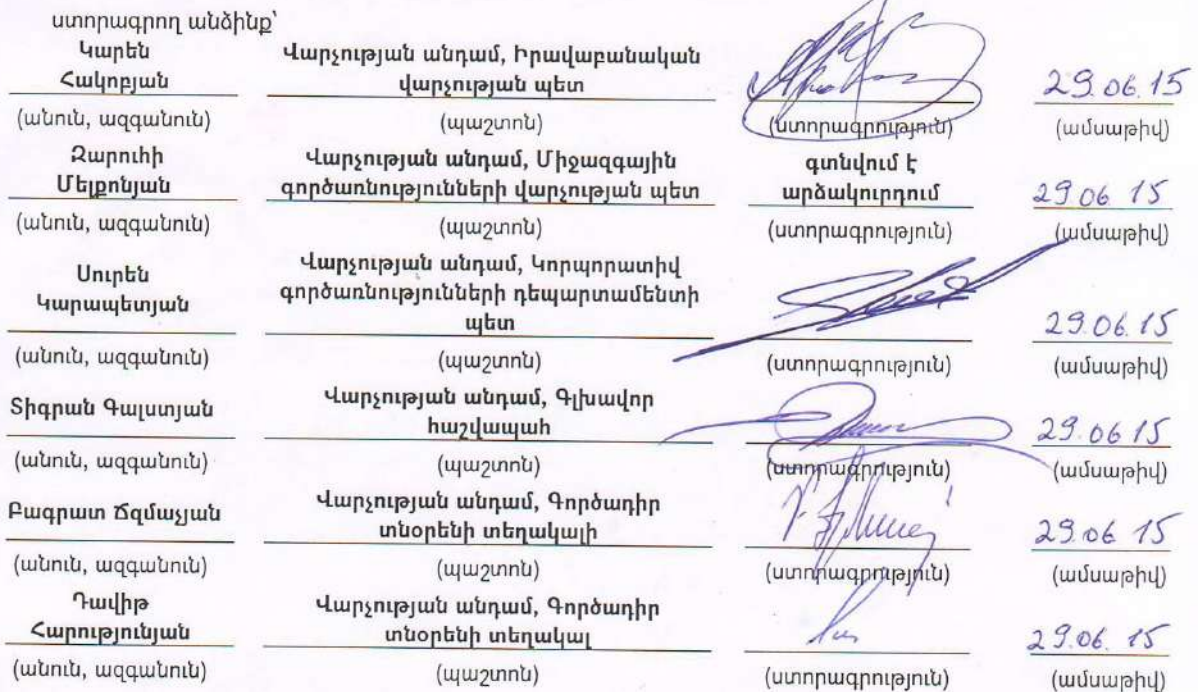 ստորագրող անձինք՝
Կարեն Վարչության անդամ, Իրավաբանական
Հակոբյան վարչության պետ 29.06.15
(անուն, ազգանուն) (պաշտոն) (ստորագրություն) (ամսաթիվ)
Զարուհի Վարչության անդամ, Միջազգային գտնվում է
Մելքոնյան գործառնությունների վարչության պետ արձակուրդում 29.06.15
(անուն, ազգանուն) (պաշտոն) (ստորագրություն) (ամսաթիվ)
Սուրեն Վարչության անդամ, Կորպորատիվ
Կարապետյան գործառնությունների դեպարտամենտի
պետ 29.06.15
(անուն, ազգանուն) (պաշտոն) (ստորագրություն) (ամսաթիվ)
Տիգրան Գալստյան Վարչության անդամ, Գլխավոր
հաշվապահ 29.06.15
(անուն, ազգանուն) (պաշտոն) (ստորագրություն) (ամսաթիվ)
Բագրատ Ճզմաչյան Վարչության անդամ, Գործադիր
տնօրենի տեղակալի 29.06.15
(անուն, ազգանուն) (պաշտոն) (ստորագրություն) (ամսաթիվ)
Դավիթ Վարչության անդամ, Գործադիր
Հարությունյան տնօրենի տեղակալ 29.06.15
(անուն, ազգանուն) (պաշտոն) (ստորագրություն) (ամսաթիվ)